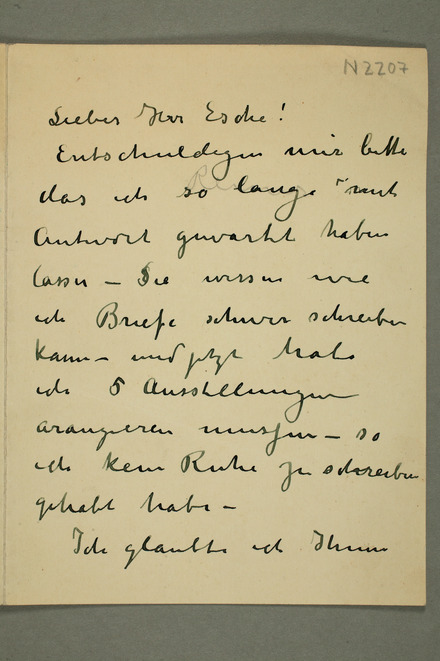 N2207
Lieber Herr Esche!
Entschuldigen mir bitte
das ich so lange mit
Antwort gewartet haben
lassen – Sie wissen wie
ich Briefe schwer schreiben
kann – und jetzt habe
ich 5 Ausstellungen
arangieren mussen – so
ich kein Ruhe zu schreiben
gehabt habe –
Ich glaubte ich Ihnen